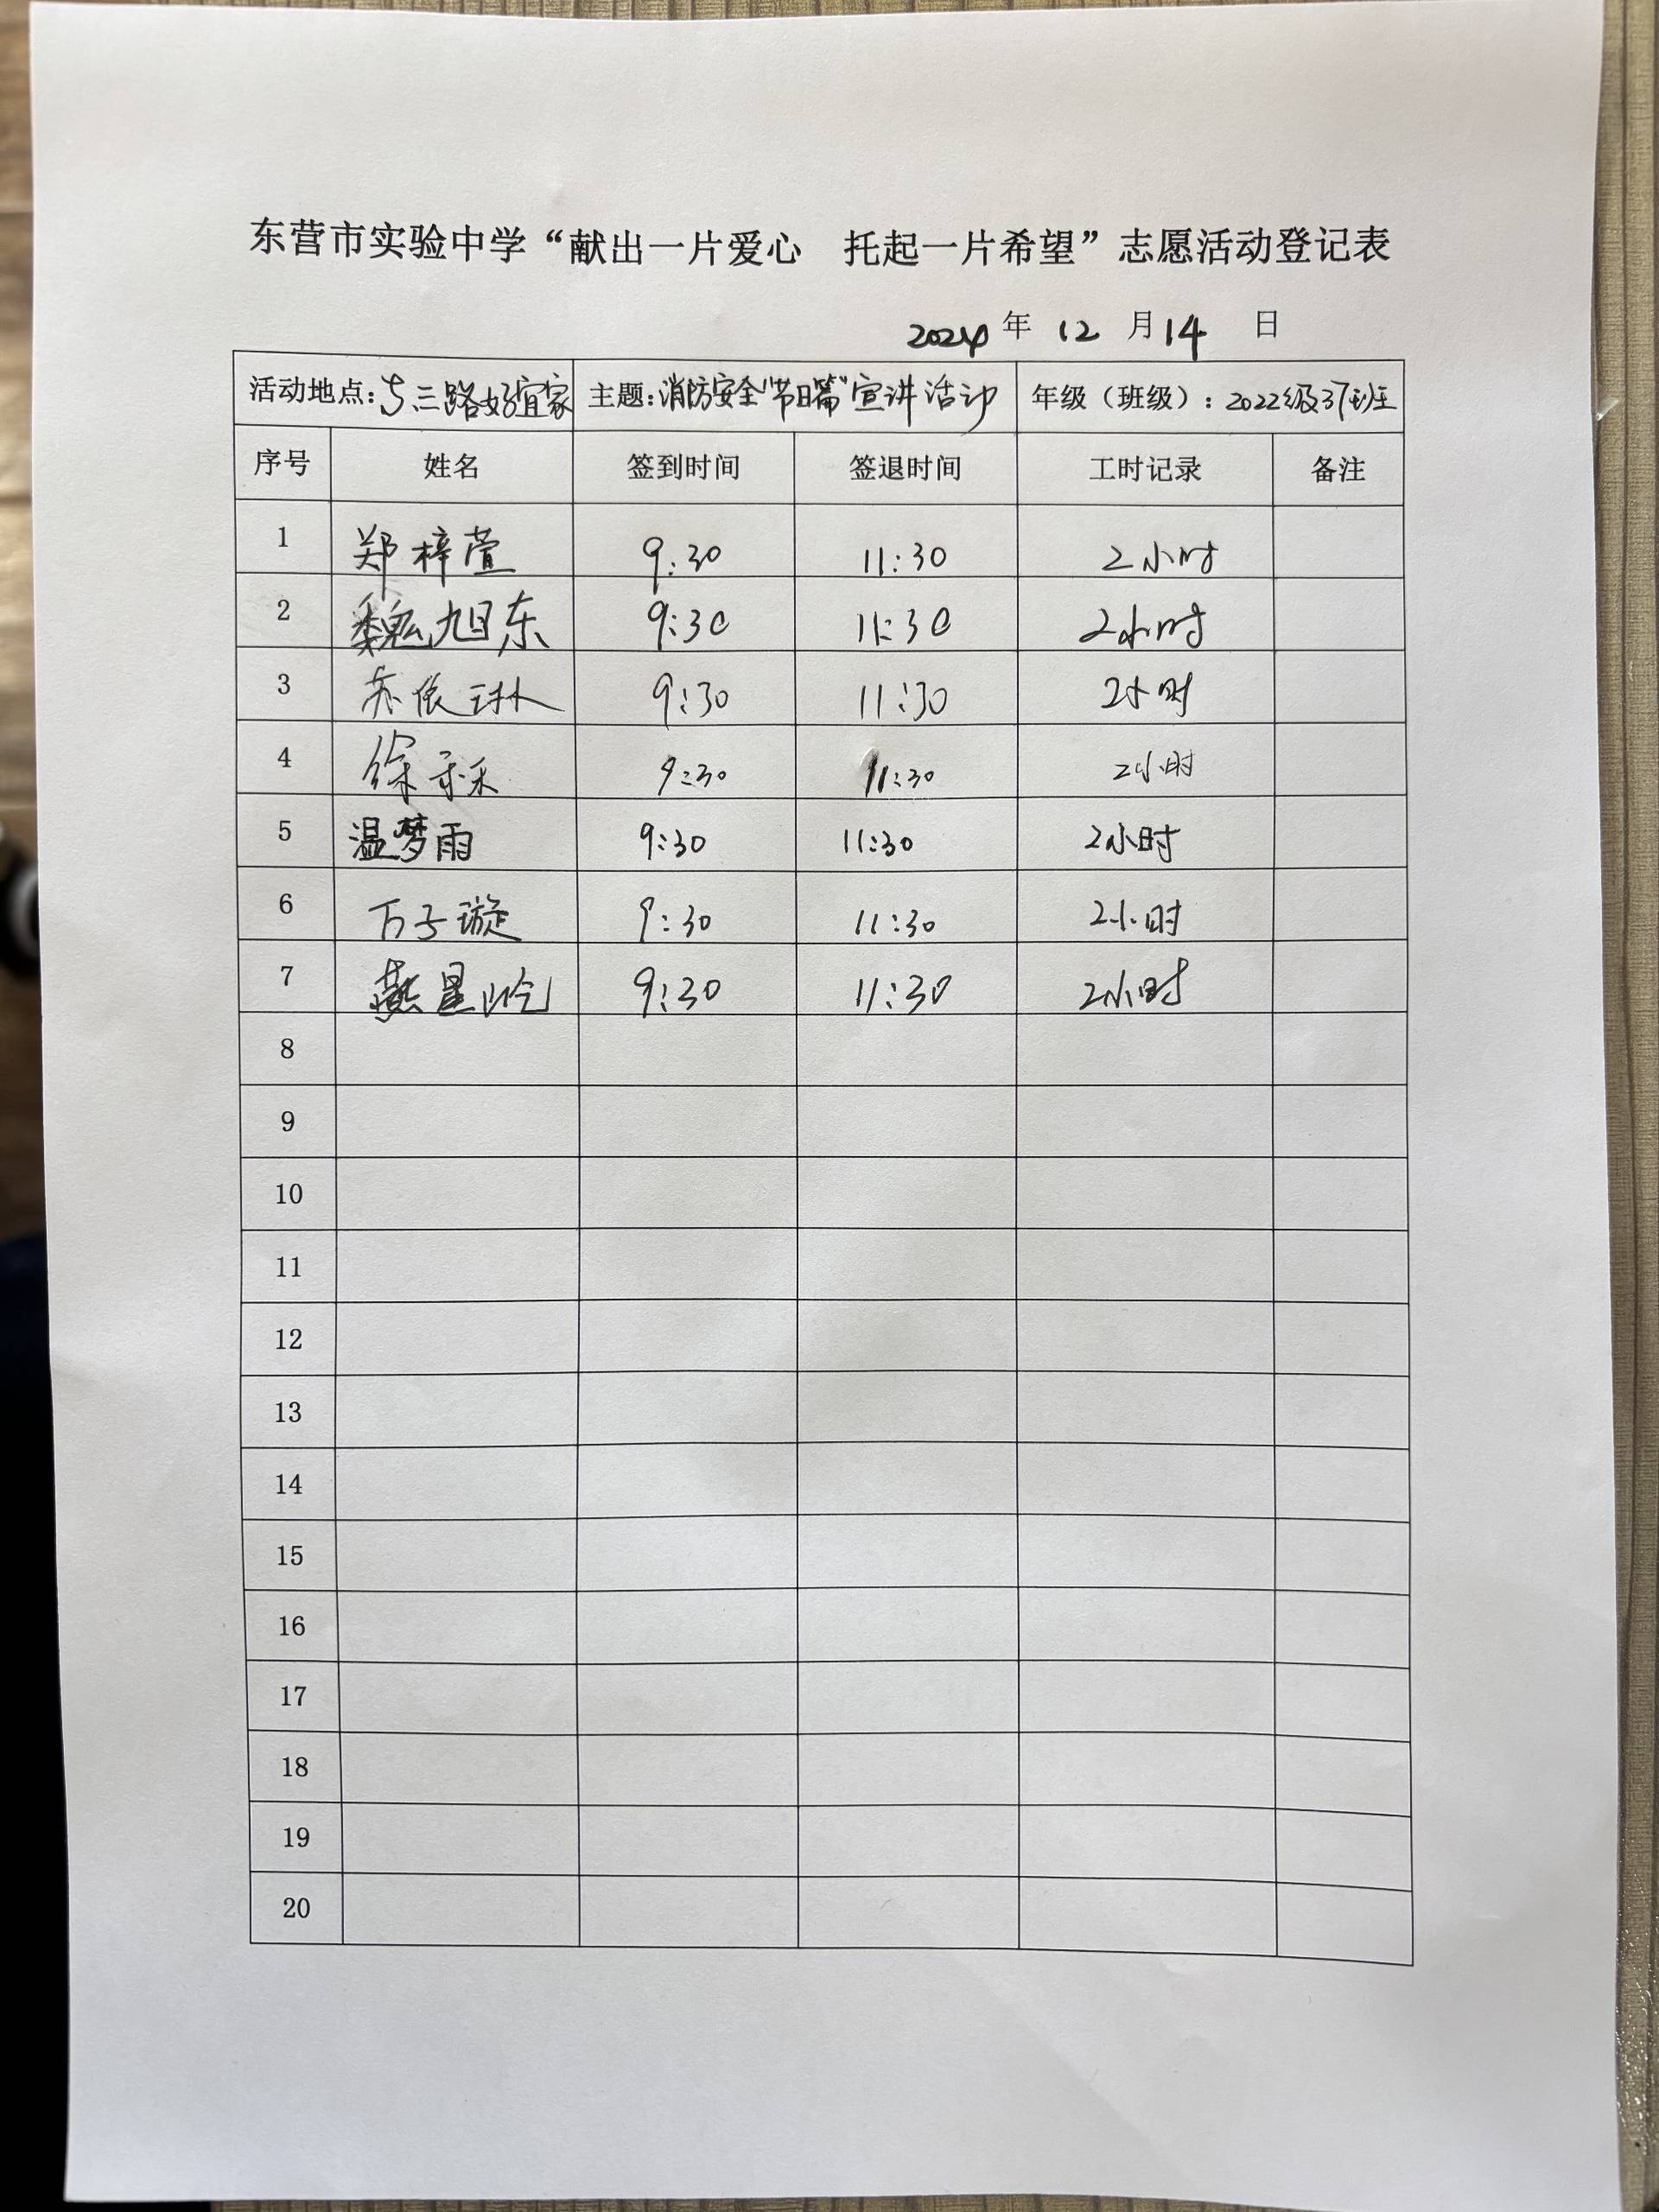 东营市实验中学“献出一片爱心 托起一片希望”志愿活动登记表
2024 年 12 月 14 日
活动地点：东三路好宜家 主题：消防安全“节日篇”宣讲活动 年级（班级）：2022级37班
序号 姓名 签到时间 签退时间 工时记录 备注
1 郑梓萱 9:30 11:30 2小时
2 魏旭东 9:30 11:30 2小时
3 苏依琳 9:30 11:30 2小时
4 徐 9:30 11:30 2小时
5 温梦雨 9:30 11:30 2小时
6 万子璇 9:30 11:30 2小时
7 燕星屹 9:30 11:30 2小时
8
9
10
11
12
13
14
15
16
17
18
19
20